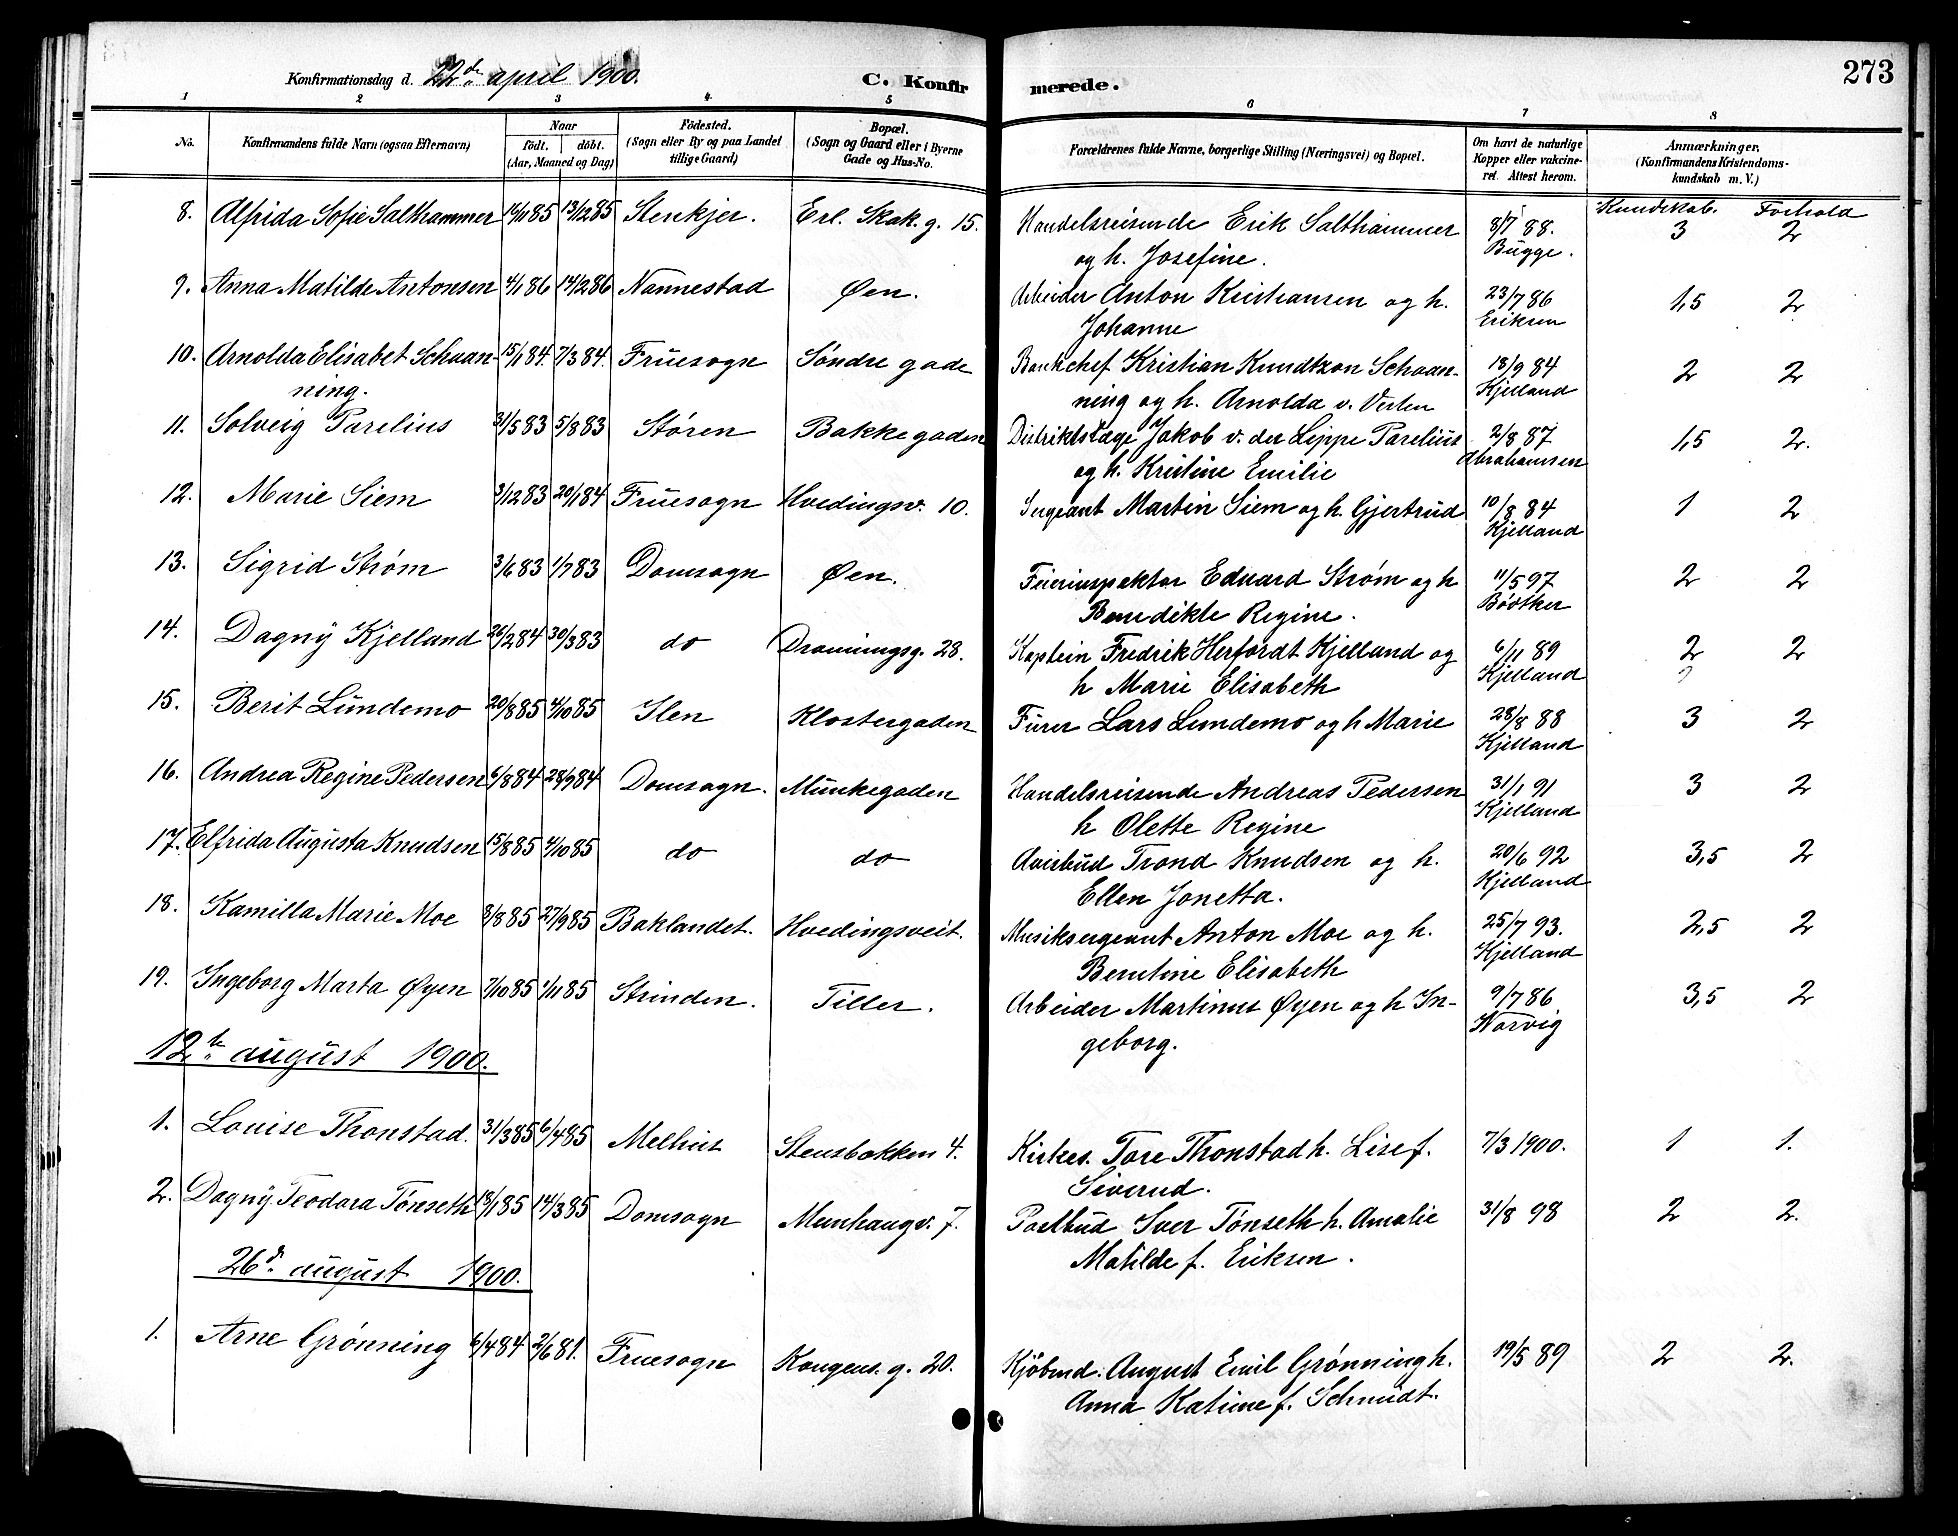 273
Konfirmationsdag d. 22de april 1900. C. Konfirmerede.
1 2 3 4. 5 6 7 8
No. Konfirmandens fulde Navn (ogsaa Efternavn) Naar født. døbt. (Aar, Maaned og Dag) Fødested. (Sogn eller By og paa Landet tillige Gaard) Bopæl. (Sogn og Gaard eller i Byerne Gade og Hus-No. Forældrenes fulde Navne, borgerlige Stilling (Næringsvei) og Bopæl. Om havt de naturlige Kopper eller vakcineret. Attest herom. Anmærkninger. (Konfirmandens Kristendomskundskab m. V.)
Kundskab. Forhold
8. Alfrida Sofie Salthammer 14/11 85 13/12 85 Stenkjer. Erl. Skak. g. 15. Handelsreisende Erik Salthammer 8/7 88. 3 2
og h. Josefine. Bugge.
9. Anna Matilde Antonsen 4/1 86 14/2 86 Nannestad Øen. Arbeider Anton Kristiansen og h. 23/7 86 1,5 2
Johanne Eriksen
10. Arnolda Elisabet Schaan- 15/1 84. 7/3 84. Fruesogn Søndre gade Bankchef Kristian Knudtzon Schaan- 18/9 84 2 2
ning. ning og h. Arnolda v. Kjelland
11. Solveig Parelius 31/5 83 5/8 83 Støren Bakkegaden Distriktslæge Jakob v. der Lippe Parelius 2/8 87 1,5 2.
og h. Kristine Emilie Abrahamsen
12. Marie Siem 3/12 83 20/1 84 Fruesogn Hvedingsv. 10. Sergeant Martin Siem og h. Gjertrud 10/8 84 1 2
Kjelland
13. Sigrid Strøm 3/6 83 1/7 83 Domsogn Øen. Feierinspektør Eduard Strøm og h 11/5 97 2 2
Benedikte Regine. Bødtker
14. Dagny Kjelland 26/2 84 30/3 83 do Dronningsg. 28. Kaptein Fredrik Herfordt Kjelland og 6/11 89 2 2
h Marie Elisabeth Kjelland
15. Berit Lundemo 20/8 85 4/10 85 Ilen Klostergaden Furer Lars Lundemo og h Marie 28/8 88 3 2
Kjelland
16. Andrea Regine Pedersen 6/8 84 28/9 84 Domsogn. Munkegaden Handelsreisende Andreas Pedersen 31/1 91 3 2
h Olette Regine Kjelland
17. Elfrida Augusta Knudsen 15/8 85 4/10 85 do do Avisbud Trond Knudsen og h. 20/6 92 3,5 2
Ellen Jonetta. Kjelland
18. Kamilla Marie Moe 8/8 85 27/9 85 Baklandet. Hvedingsveit. Musiksergeant Anton Moe og h. 25/7 93. 2,5 2
Berntine Elisabeth Kjelland
19. Ingeborg Marta Øyen 7/10 85 1/11 85 Strinden. Tiller. Arbeider Martinus Øyen og h In- 9/7 86 3,5 2
geborg. Norvig
12te august 1900.
1. Louise Thonstad. 31/3 85 6/4 85 Melhus Stensbakken 4. Kirkes. Tore Thonstad h. Lise f. 7/3 1900. 1 1.
Siverud.
2. Dagny Teodora Tønseth 18/1 85 14/3 85 Domsogn Munhaugv. 7. Postbud Iver Tønseth h. Amalie 31/8 98 2 2.
Matilde f. Eriksen.
26de august 1900.
1. Arne Grønning 6/4 84 2/6 81. Fruesogn Kongens. g. 20. Kjöbmd. August Emil Grønning h. 19/5 89 2 2.
Anna Katinne f. Schmidt.